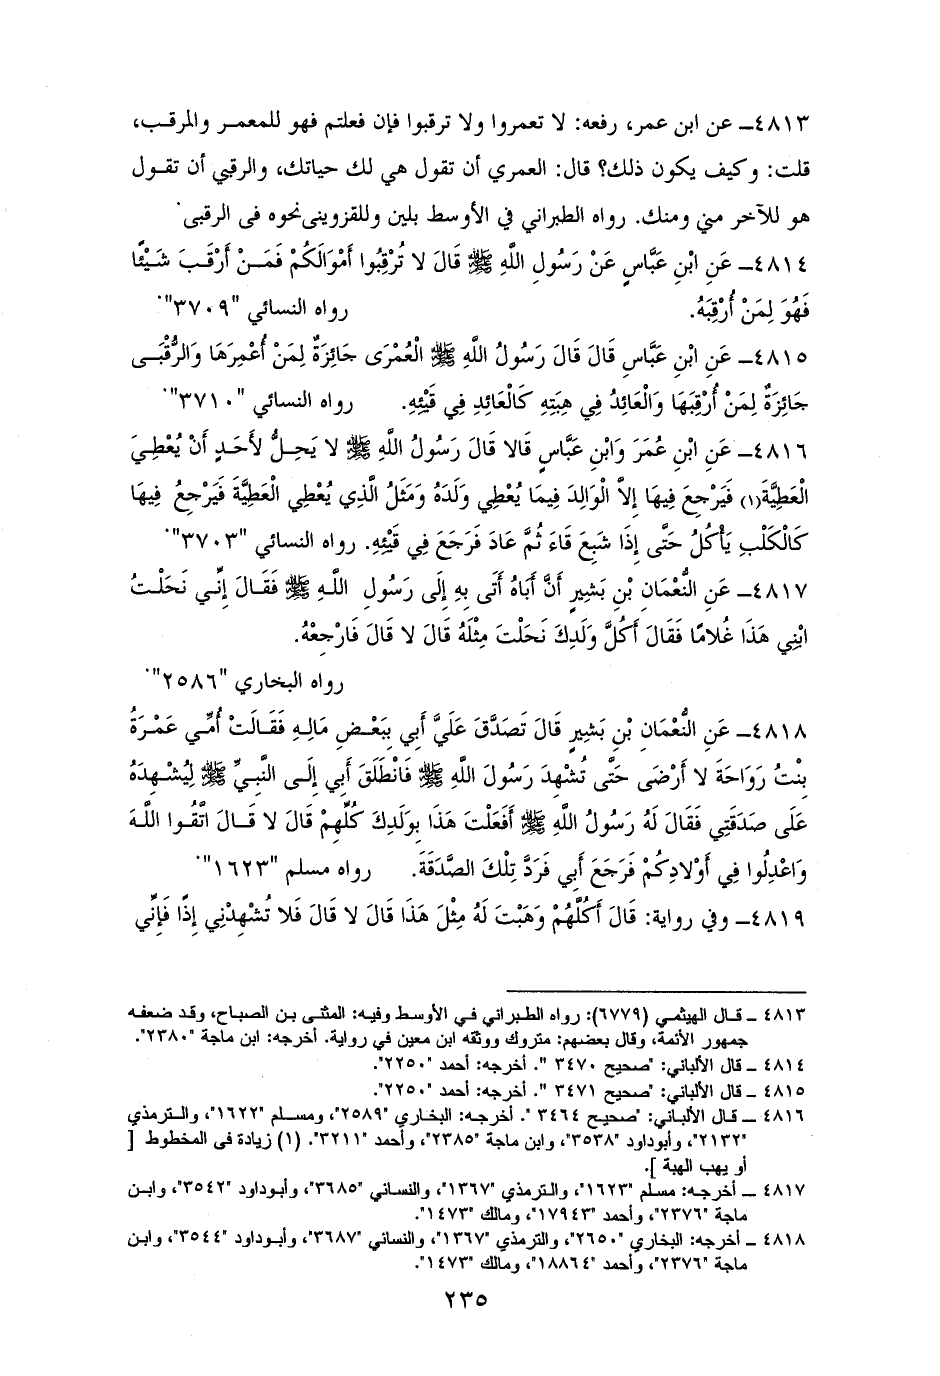 ٤٨١٣ـ عن ابن عمر، رفعه: لا تعمروا ولا ترقبوا فإن فعلتم فهو للمعمر والمرقب،
قلت: وكيف يكون ذلك؟ قال: العمري أن تقول هي لك حياتك، والرقبي أن تقول
هو للآخر مني ومنك. رواه الطبراني في الأوسط بلين وللقزوينى نحوه فى الرقبى
٤٨١٤ـ عَنِ ابْنِ عَبَّاسٍ عَنْ رَسُولِ اللَّهِ ﷺ قَالَ لا تُرْقِبُوا أَمْوَالَكُمْ فَمَنْ أَرْقَبَ شَيْئًا
فَهُوَ لِمَنْ أُرْقِبَهُ. رواه النسائي "٣٧٠٩".
٤٨١٥ـ عَنِ ابْنِ عَبَّاسٍ قَالَ قَالَ رَسُولُ اللَّهِ ﷺ الْعُمْرَى جَائِزَةٌ لِمَنْ أُعْمِرَهَا وَالرُّقْبَى
جَائِزَةٌ لِمَنْ أُرْقِبَهَا وَالْعَائِدُ فِي هِبَتِهِ كَالْعَائِدِ فِي قَيْئِهِ. رواه النسائي "٣٧١٠".
٤٨١٦ـ عَنِ ابْنِ عُمَرَ وَابْنِ عَبَّاسٍ قَالا قَالَ رَسُولُ اللَّهِ ﷺ لا يَحِلُّ لأَحَدٍ أَنْ يُعْطِيَ
الْعَطِيَّةَ(١) فَيَرْجِعَ فِيهَا إِلاَّ الْوَالِدَ فِيمَا يُعْطِي وَلَدَهُ وَمَثَلُ الَّذِي يُعْطِي الْعَطِيَّةَ فَيَرْجِعُ فِيهَا
كَالْكَلْبِ يَأْكُلُ حَتَّى إِذَا شَبِعَ قَاءَ ثُمَّ عَادَ فَرَجَعَ فِي قَيْئِهِ. رواه النسائي "٣٧٠٣".
٤٨١٧ـ عَنِ النُّعْمَانِ بْنِ بَشِيرٍ أَنَّ أَبَاهُ أَتَى بِهِ إِلَى رَسُولِ اللَّهِ ﷺ فَقَالَ إِنِّي نَحَلْتُ
ابْنِي هَذَا غُلامًا فَقَالَ أَكُلَّ وَلَدِكَ نَحَلْتَ مِثْلَهُ قَالَ لا قَالَ فَارْجِعْهُ.
رواه البخاري "٢٥٨٦".
٤٨١٨ـ عَنِ النُّعْمَانِ بْنِ بَشِيرٍ قَالَ تَصَدَّقَ عَلَيَّ أَبِي بِبَعْضِ مَالِهِ فَقَالَتْ أُمِّي عَمْرَةُ
بِنْتُ رَوَاحَةَ لا أَرْضَى حَتَّى تُشْهِدَ رَسُولَ اللَّهِ ﷺ فَانْطَلَقَ أَبِي إِلَى النَّبِيِّ ﷺ لِيُشْهِدَهُ
عَلَى صَدَقَتِي فَقَالَ لَهُ رَسُولُ اللَّهِ ﷺ أَفَعَلْتَ هَذَا بِوَلَدِكَ كُلِّهِمْ قَالَ لا قَالَ اتَّقُوا اللَّهَ
وَاعْدِلُوا فِي أَوْلادِكُمْ فَرَجَعَ أَبِي فَرَدَّ تِلْكَ الصَّدَقَةَ. رواه مسلم "١٦٢٣".
٤٨١٩ـ وفي رواية: قَالَ أَكُلَّهُمْ وَهَبْتَ لَهُ مِثْلَ هَذَا قَالَ لا قَالَ فَلا تُشْهِدْنِي إِذًا فَإِنِّي
٤٨١٣ ـ قال الهيثمي (٦٧٧٩): رواه الطبراني في الأوسط وفيه: المثنى بن الصباح، وقد ضعفه
جمهور الأئمة، وقال بعضهم: متروك ووثقه ابن معين في رواية. أخرجه: ابن ماجة "٢٣٨٠".
٤٨١٤ ـ قال الألباني: "صحيح ٣٤٧٠ ". أخرجه: أحمد "٢٢٥٠".
٤٨١٥ ـ قال الألباني: "صحيح ٣٤٧١ ". أخرجه: أحمد "٢٢٥٠".
٤٨١٦ ـ قال الألباني: "صحيح ٣٤٦٤ ". أخرجه: البخاري "٢٥٨٩"، ومسلم "١٦٢٢"، والترمذي
"٢١٣٢"، وأبوداود "٣٥٣٨"، وابن ماجة "٢٣٨٥"، وأحمد "٣٢١١". (١) زيادة فى المخطوط [
أو يهب الهبة ].
٤٨١٧ ـ أخرجه: مسلم "١٦٢٣"، والترمذي "١٣٦٧"، والنسائي "٣٦٨٥"، وأبوداود "٣٥٤٢"، وابن
ماجة "٢٣٧٦"، وأحمد "١٧٩٤٣"، ومالك "١٤٧٣".
٤٨١٨ ـ أخرجه: البخاري "٢٦٥٠"، والترمذي "١٣٦٧"، والنسائي "٣٦٨٧"، وأبوداود "٣٥٤٤"، وابن
ماجة "٢٣٧٦"، وأحمد "١٨٨٦٤"، ومالك "١٤٧٣".
٢٣٥